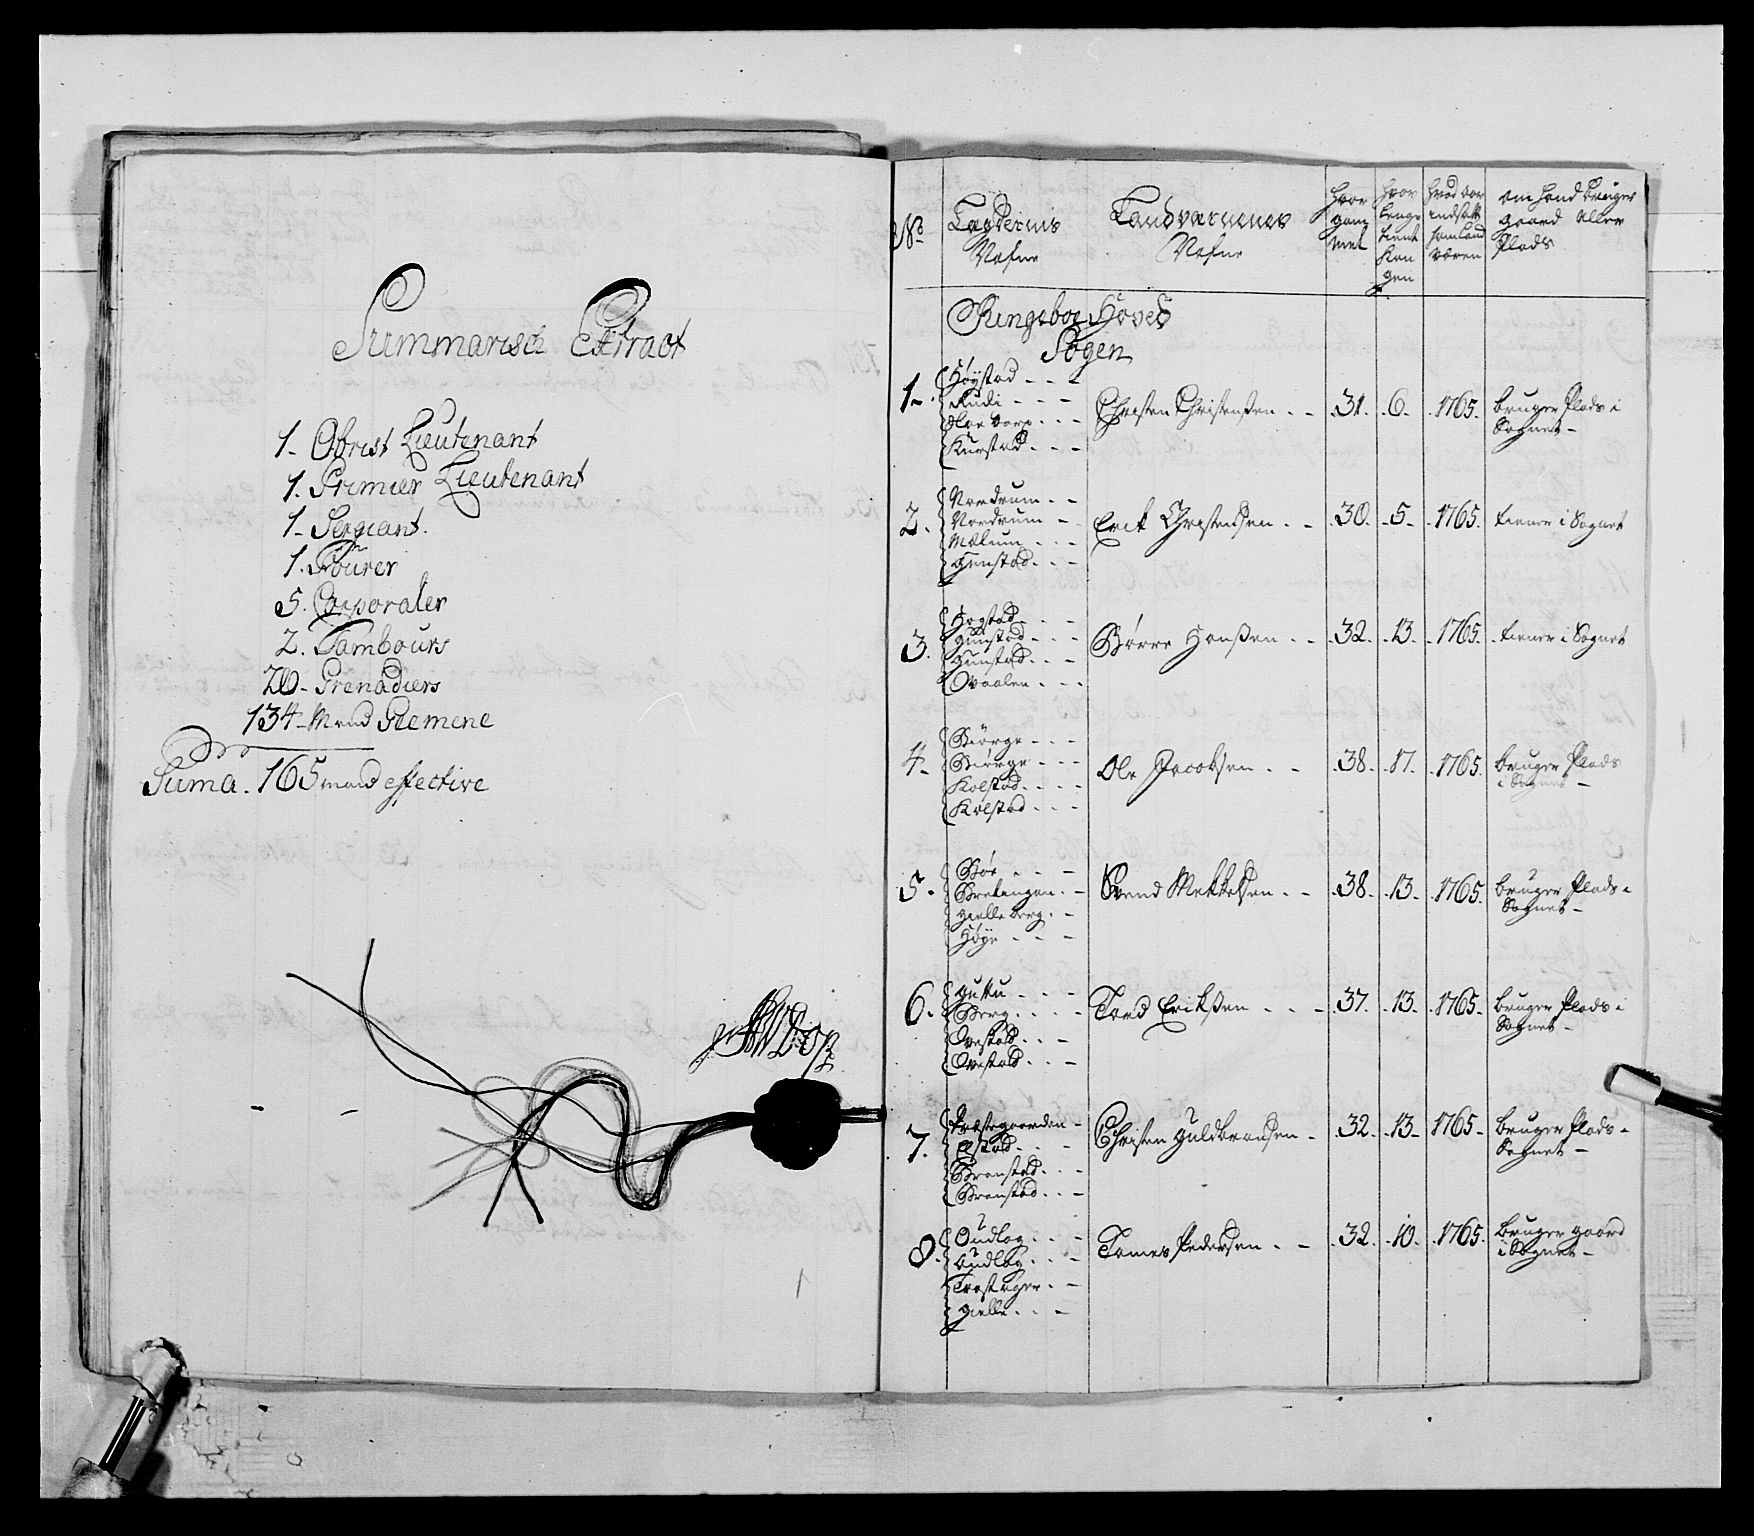 Summarisch Extract
1. Obrist Lieutenant
1. Premier Lieutenant
1. Sergiant.
1. Fourer
5. Corporaler
2. Tambours
20. Grenadiers
134. Mand Gemene
Suma. 165 mand effective
1
No
Lægdernis
Nafne
Landværnenes
Nafne
hvor
gam
mel
hvor
lenge
tient
Kon
gen
hvad aar
indsatt
som Land
væren
om hand bruger
gaard eller
Plads
Ringeboe Hoved
Sogen
1. Høystad
Rudi
Kierstad
Christen Christensen 31. 6. 1765. bruger Plads i
Sognet
2. Nordrum
Nordrum
Mælum
Gunstad
Erik Christensen 30. 5. 1765. tiener i Sognet
3. Hogstad
Gunstad
Gunstad
Ovaalen
Børre Hansen 32. 13. 1765. tiener i Sognet
4. Biørge
Biørge
Kolstad
Kolstad
Ole Jacobsen 38. 17. 1765. bruger Plads
i Sognet
5. Bøe
Brekengen
Gielleberg
Høye
Svend Mekkelsen 38. 13. 1765. bruger Plads i
Sognet
6. Gullu
Berg
Ovestad
Ovestad
Tord Eriksen 37. 13. 1765. bruger Plads i
Sognet
7. Præstegaarden
Elstad
Brenstad
Brenstad
Christen Guldbransen 32. 13. 1765. bruger Plads i
Sognet
8. Oudlog
Oudlog
Trostager
Gielle
Tomes Pedersen 32. 10. 1765. bruger gaard
i Sognet